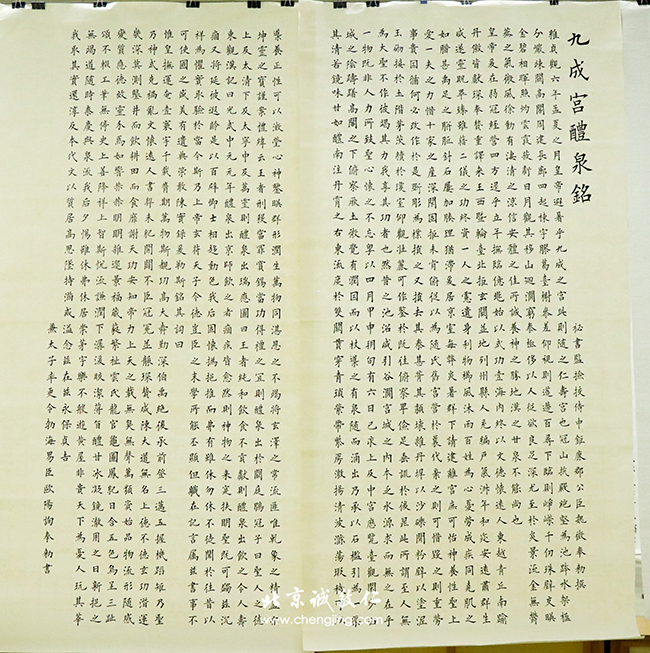 九成宮醴泉銘
秘書監檢校侍中鉅鹿郡公臣魏徵奉勅撰
維貞觀六年孟夏之月皇帝避暑乎九成之宮此則隨之仁壽宮也冠山抗殿絕壑為池跨水架楹
分巖竦闕高閣周建長廊四起棟宇膠葛臺榭參差仰視則迢遰百尋下臨則崢嶸千仞珠璧交暎
金碧相暉照灼雲霞蔽虧日月觀其移山迴澗窮泰極侈以人從欲良足深尤至於炎景流金無鬱
蒸之氣微風徐動有淒清之涼信安體之佳所誠養神之勝地漢之甘泉不能尚也
皇帝爰在弱冠經營四方逮乎立年撫臨億兆始以武功壹海內終以文德懷遠人東越青丘南踰
丹儌皆獻琛奉贄重譯來王西暨輪臺北拒玄闕並地列州縣人充編戶氣淑年和迩安遠肅群生
咸遂靈貺畢臻雖藉二儀之功終資一人之慮遺身利物櫛風沐雨百姓為心憂勞成疾同堯肌之
如腊甚禹足之胼胝針石屢加腠理猶滯爰居京室每弊炎暑群下請建離宮庶可怡神養性聖上
愛一夫之力惜十家之產深閉固拒未肯俯從以為隨氏舊宮營於曩代棄之則可惜毀之則重勞
事貴因循何必改作於是斲彫為樸損之又損去其泰甚葺其頹壞雜丹墀以沙礫間粉壁以塗泥
玉砌接於土階茅茨續於瓊室仰觀壯麗可作鑒於既往俯察卑儉足垂訓於後昆此所謂至人無
為大聖不作彼竭其力我享其功者也然昔之池沼咸引谷澗宮城之內本乏水源求而無之在乎
一物既非人力所致聖心懷之不忘粵以四月甲申朔旬有六日己亥上及中宮歷覽臺觀閑步西
城之陰躊躇高閣之下俯察厥土微覺有潤因而以杖導之有泉隨而涌出乃承以石檻引為一渠
其清若鏡味甘如醴南注丹霄之右東流度於雙闕貫穿青瑣縈帶紫房激揚清波滌蕩瑕穢
導養正性可以澂瑩心神鑒暎群形潤生萬物同湛恩之不竭將玄澤之常流匪唯乾象之精蓋亦
坤靈之寶謹案禮緯云王者刑殺當罪賞錫當功得禮之宜則醴泉出於闕庭鶡冠子曰聖人之德
上及太清下及太寧中及萬靈則醴泉出瑞應圖曰王者純和飲食不貢獻則醴泉出飲之令人壽
東觀漢記曰光武中元元年醴泉出京師飲之者痼疾皆愈然則神物之來寔扶明聖既可蠲茲沉
痼又將延彼遐齡是以百辟卿士相趨動色我后固懷撝挹推而弗有雖休勿休不徒聞於往昔以
祥為懼實取驗於當今斯乃上帝玄符天子令德豈臣之末學所能丕顯但職在記言屬茲書事不
可使國之盛美有遺典策敢陳實錄爰勒斯銘其詞曰
惟皇撫運奄壹寰宇千載膺期萬物斯覩功高大舜勤深伯禹絕後承前登三邁五握機蹈矩乃聖
乃神武克禍亂文懷遠人書契未紀開闢不臣冠冕並襲琛贄咸陳大道無名上德不德玄功潛運
幾深莫測鑿井而飲耕田而食靡謝天功安知帝力上天之載無臭無聲萬類資始品物流形隨感
變質應德效靈介焉如響赫赫明明雜遝景福葳蕤繁祉雲氏龍官龜圖鳳紀日含五色烏呈三趾
頌不輟工筆無停史上善降祥上智斯悅流謙潤下潺湲皎潔蓱旨醴甘冰凝鏡澈用之日新挹之
無竭道隨時泰慶與泉流我后夕惕雖休弗休居崇茅宇樂不般遊黃屋非貴天下為憂人玩其華
我取其實還淳反本代文以質居高思墜持滿戒溢念茲在茲永保貞吉
兼太子率更令勃海男臣歐陽詢奉勅書
北京诚敬仁
www.chengjing.com